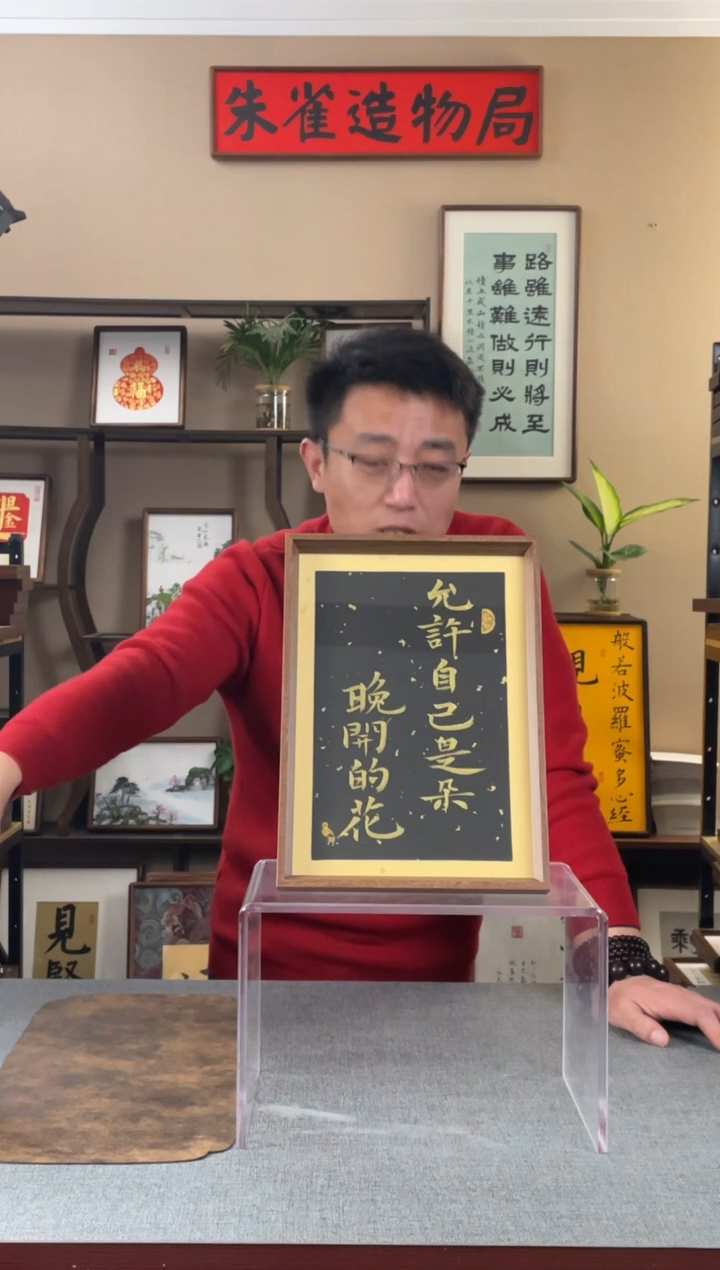 朱雀造物局
路雖遠行則將至
事雖難做則必成
允許自己是朵
晚開的花
般若波羅蜜多心經
見
見賢
乘